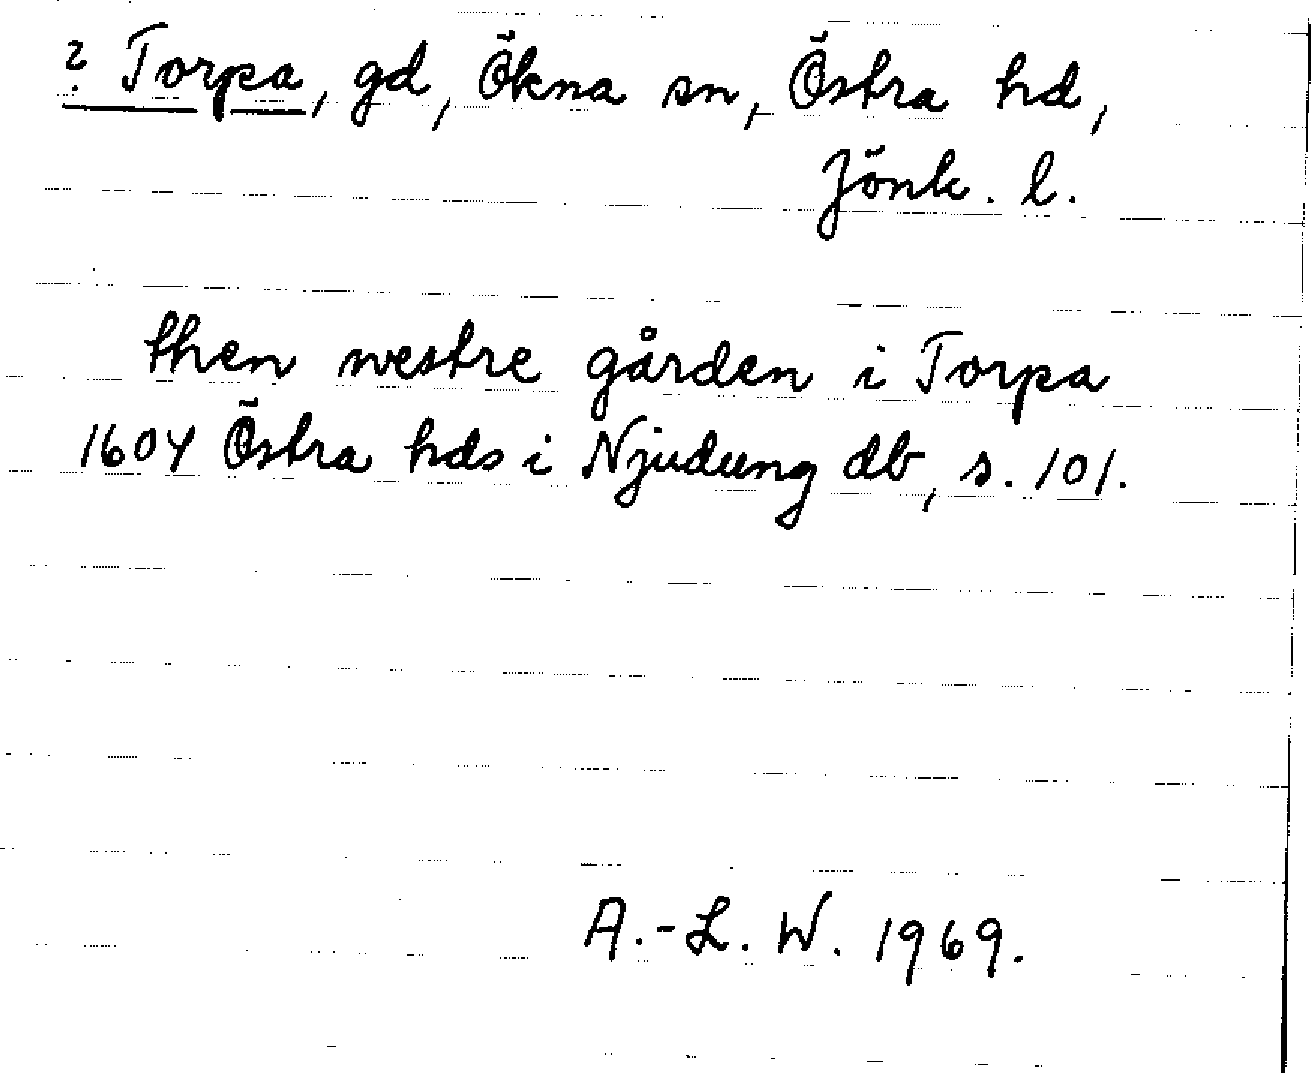 ? Torpa, gd, Ökna sn, Östra hd,
Jönk. l.
then westre gården i Torpa
1604 Östra hds i Njudung db, s. 101.
A.-L. W. 1969.